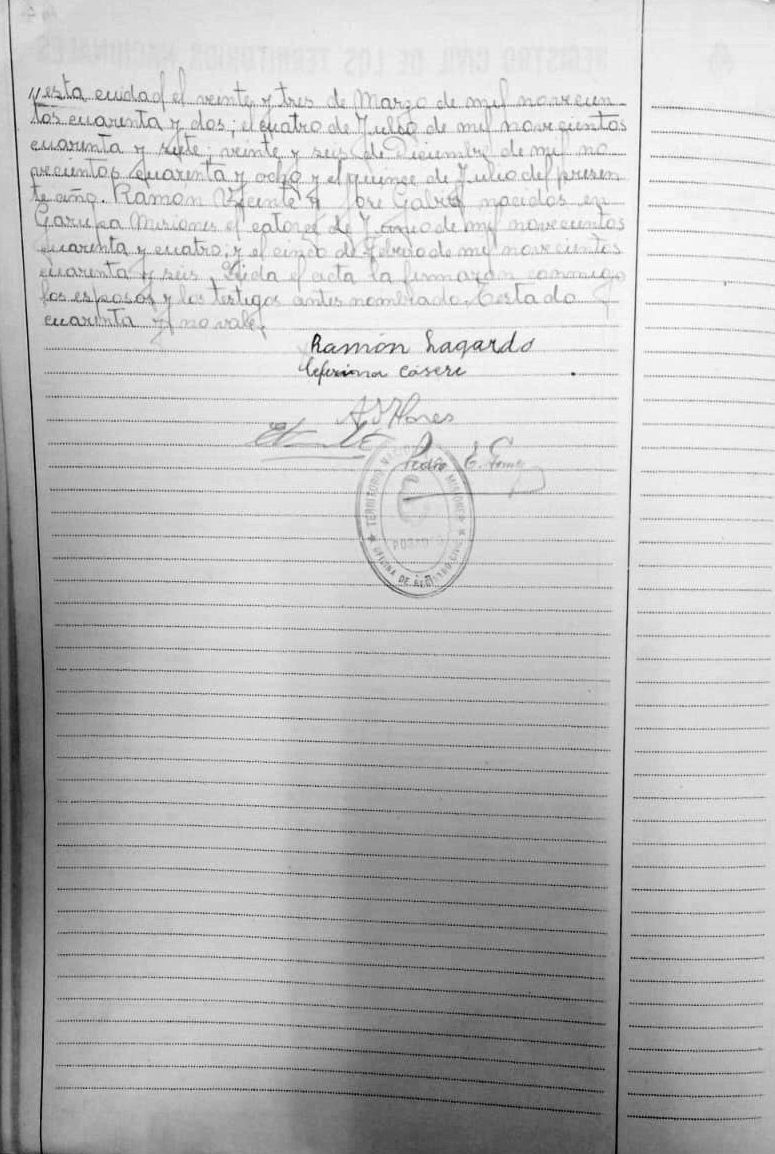 y esta cuidad el veinte y tres de Marzo de mil novecien
tos cuarenta y dos; el cuatro de Julio de mil novecientos
cuarenta y siete; veinte y seis de Diciembre de mil no
vecientos cuarenta y ocho y el quince de Julio del presen
te año. Ramón Vicente y José Gabriel nacidos en
Garupa Misiones el catorce de Junio de mil novecientos
cuarenta y cuatro; y el cinco de Febrero de mil novecientos
cuarenta y seis. Leida el acta la firmarón conmigo
los esposos y los testigos antes nombrado. Testado
cuarenta y no vale,
Ramón Lagardo
Ceferina Casere
A. Flores
Pedro E. Gomez
TERRITORIO MISIONES
POSADAS
OFICINA DE